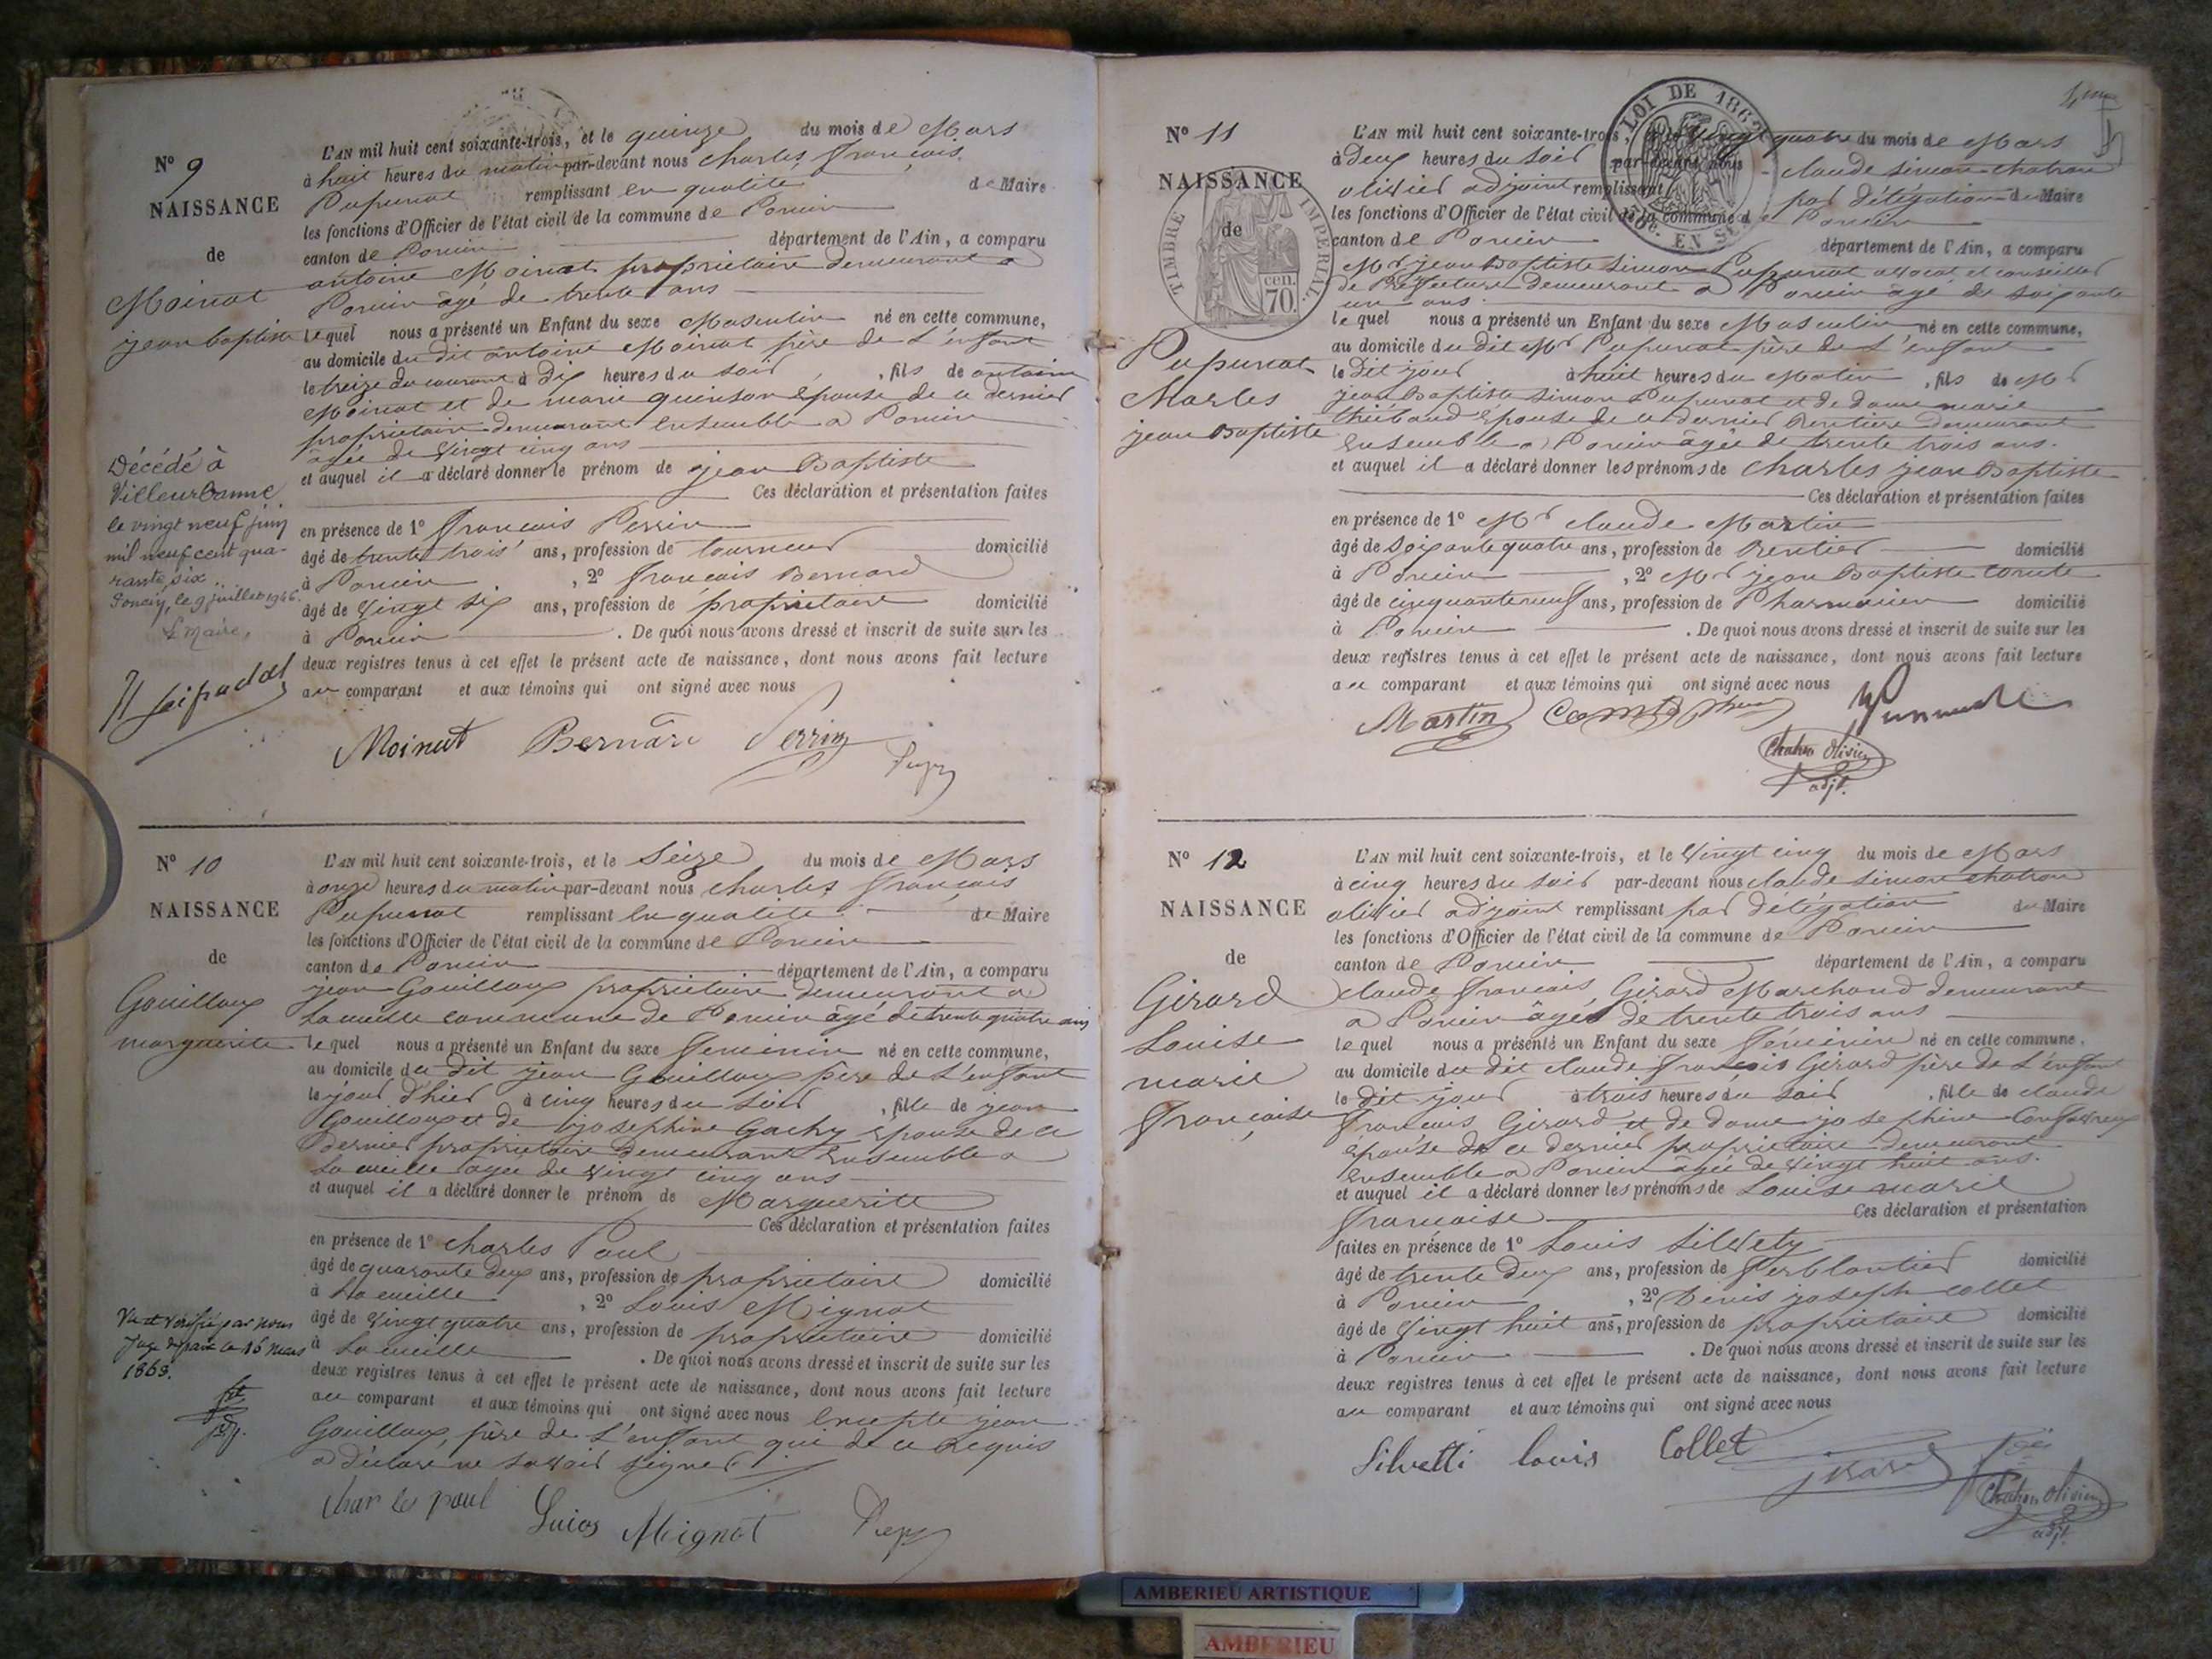 N° 9
NAISSANCE
de
Moinat
jean baptiste
Décédé à
Villeurbanne
le vingt neuf juin
mil neuf cent qua-
rante six
Poncin, le 9 juillet 1946.
Le Maire,
L'AN mil huit cent soixante-trois, et le quinze du mois de Mars
à huit heures du matin par-devant nous charles françois
Pupunat remplissant en qualité de Maire
les fonctions d'Officier de l'état civil de la commune de Poncin
canton de Poncin département de l'Ain, a comparu
antoine Moinat propriétaire demeurant a
Poncin âgé de trente ans
lequel nous a présenté un Enfant du sexe Masculin né en cette commune,
au domicile du dit antoine Moinat père de L'enfant
le treize du courant à Dix heures du soir, fils de antoine
Moinat et de marie quinson épouse de ce dernier
propriétaire demeurant ensemble a Poncin
âgée de vingt cinq ans
et auquel il a déclaré donner le prénom de jean Baptiste
Ces déclaration et présentation faites
en présence de 1° françois Perrin
âgé de trente trois ans, profession de tourneur domicilié
à Poncin, 2° françois Bernard
âgé de vingt six ans, profession de propriétaire domicilié
à Poncin. De quoi nous avons dressé et inscrit de suite sur les
deux registres tenus à cet effet le présent acte de naissance, dont nous avons fait lecture
au comparant et aux témoins qui ont signé avec nous
Moinat Bernard Perrin
N° 10
NAISSANCE
de
Gouilloux
marguerite
Vu et vérifié par nous
Juge de paix le 16 mars
1863.
L'AN mil huit cent soixante-trois, et le Seize du mois de Mars
à onze heures du matin par-devant nous charles françois
Pupunat remplissant en qualité de Maire
les fonctions d'Officier de l'état civil de la commune de Poncin
canton de Poncin département de l'Ain, a comparu
jean Gouilloux propriétaire demeurant a
La cueille commune de Poncin âgé de trente quatre ans
lequel nous a présenté un Enfant du sexe féminin né en cette commune,
au domicile du dit jean Gouilloux père de L'enfant
le jour d'hier à cinq heures du soir, fille de jean
Gouilloux et de josephine Gachy épouse de ce
dernier propriétaire demeurant ensemble a
La cueille agée de vingt cinq ans
et auquel il a déclaré donner le prénom de Marguerite
Ces déclaration et présentation faites
en présence de 1° charles Paul
âgé de quarante deux ans, profession de propriétaire domicilié
à La cueille, 2° Louis Mignot
âgé de vingt quatre ans, profession de propriétaire domicilié
à La cueille. De quoi nous avons dressé et inscrit de suite sur les
deux registres tenus à cet effet le présent acte de naissance, dont nous avons fait lecture
au comparant et aux témoins qui ont signé avec nous Excepte jean
Gouilloux, père de L'enfant qui de ce Requis
a déclaré ne savoir signer
charles paul Luios Mignot
N° 11
NAISSANCE
de
TIMBRE IMPERIAL.
cen.
70.
LOI DE 1862
EN SUS
Pupunat
Charles
jean Baptiste
L'AN mil huit cent soixante-trois, et le vingt quatre du mois de Mars
à Deux heures du soir par-devant nous claude simon chatron
olivier adjoint remplissant par délégation du Maire
les fonctions d'Officier de l'état civil de la commune de Poncin
canton de Poncin département de l'Ain, a comparu
Mr jean Baptiste simon Pupunat avocat et conseiller
de Préfecture demeurant a Poncin âgé de soixante
un ans
lequel nous a présenté un Enfant du sexe Masculin né en cette commune,
au domicile du dit Mr Pupunat père de L'enfant
le dit jour à huit heures du Matin, fils de Mr
jean Baptiste simon Pupunat et de dame marie
thiébaud épouse de ce dernier Rentière demeurant
ensemble a Poncin âgée de trente trois ans.
et auquel il a déclaré donner les prénoms de charles jean Baptiste
Ces déclaration et présentation faites
en présence de 1° Mr claude Martin
âgé de soixante quatre ans, profession de Rentier domicilié
à Poncin, 2° Mr jean Baptiste Comte
âgé de cinquante neuf ans, profession de Pharmacien domicilié
à Poncin. De quoi nous avons dressé et inscrit de suite sur les
deux registres tenus à cet effet le présent acte de naissance, dont nous avons fait lecture
au comparant et aux témoins qui ont signé avec nous
Martin Comte
Chatron Olivier
adjt.
N° 12
NAISSANCE
de
Girard
Louise
marie
françoise
L'AN mil huit cent soixante-trois, et le vingt cinq du mois de Mars
à cinq heures du soir par-devant nous claude simon chatron
olivier adjoint remplissant par délégation du Maire
les fonctions d'Officier de l'état civil de la commune de Poncin
canton de Poncin département de l'Ain, a comparu
claude françois Girard Marchand demeurant
a Poncin âgé de trente trois ans
lequel nous a présenté un Enfant du sexe féminin né en cette commune,
au domicile du dit claude françois Girard père de L'enfant
le dit jour à trois heures du soir, fille de claude
françois Girard et de dame josephine
épouse de ce dernier propriétaire demeurant
ensemble a Poncin âgée de vingt huit ans.
et auquel il a déclaré donner les prénoms de Louise marie
françoise Ces déclaration et présentation
faites en présence de 1° Louis Silvety
âgé de trente deux ans, profession de ferblantier domicilié
à Poncin, 2° Denis joseph collet
âgé de vingt huit ans, profession de propriétaire domicilié
à Poncin. De quoi nous avons dressé et inscrit de suite sur les
deux registres tenus à cet effet le présent acte de naissance, dont nous avons fait lecture
au comparant et aux témoins qui ont signé avec nous
Silvetti louis Collet Girard
Chatron Olivier
adjt.
AMBERIEU ARTISTIQUE
AMBERIEU